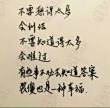 不要想得太多
会犯错
不要知道得太多
会难过
有些事不必去知道答案
就傻也是一种幸福